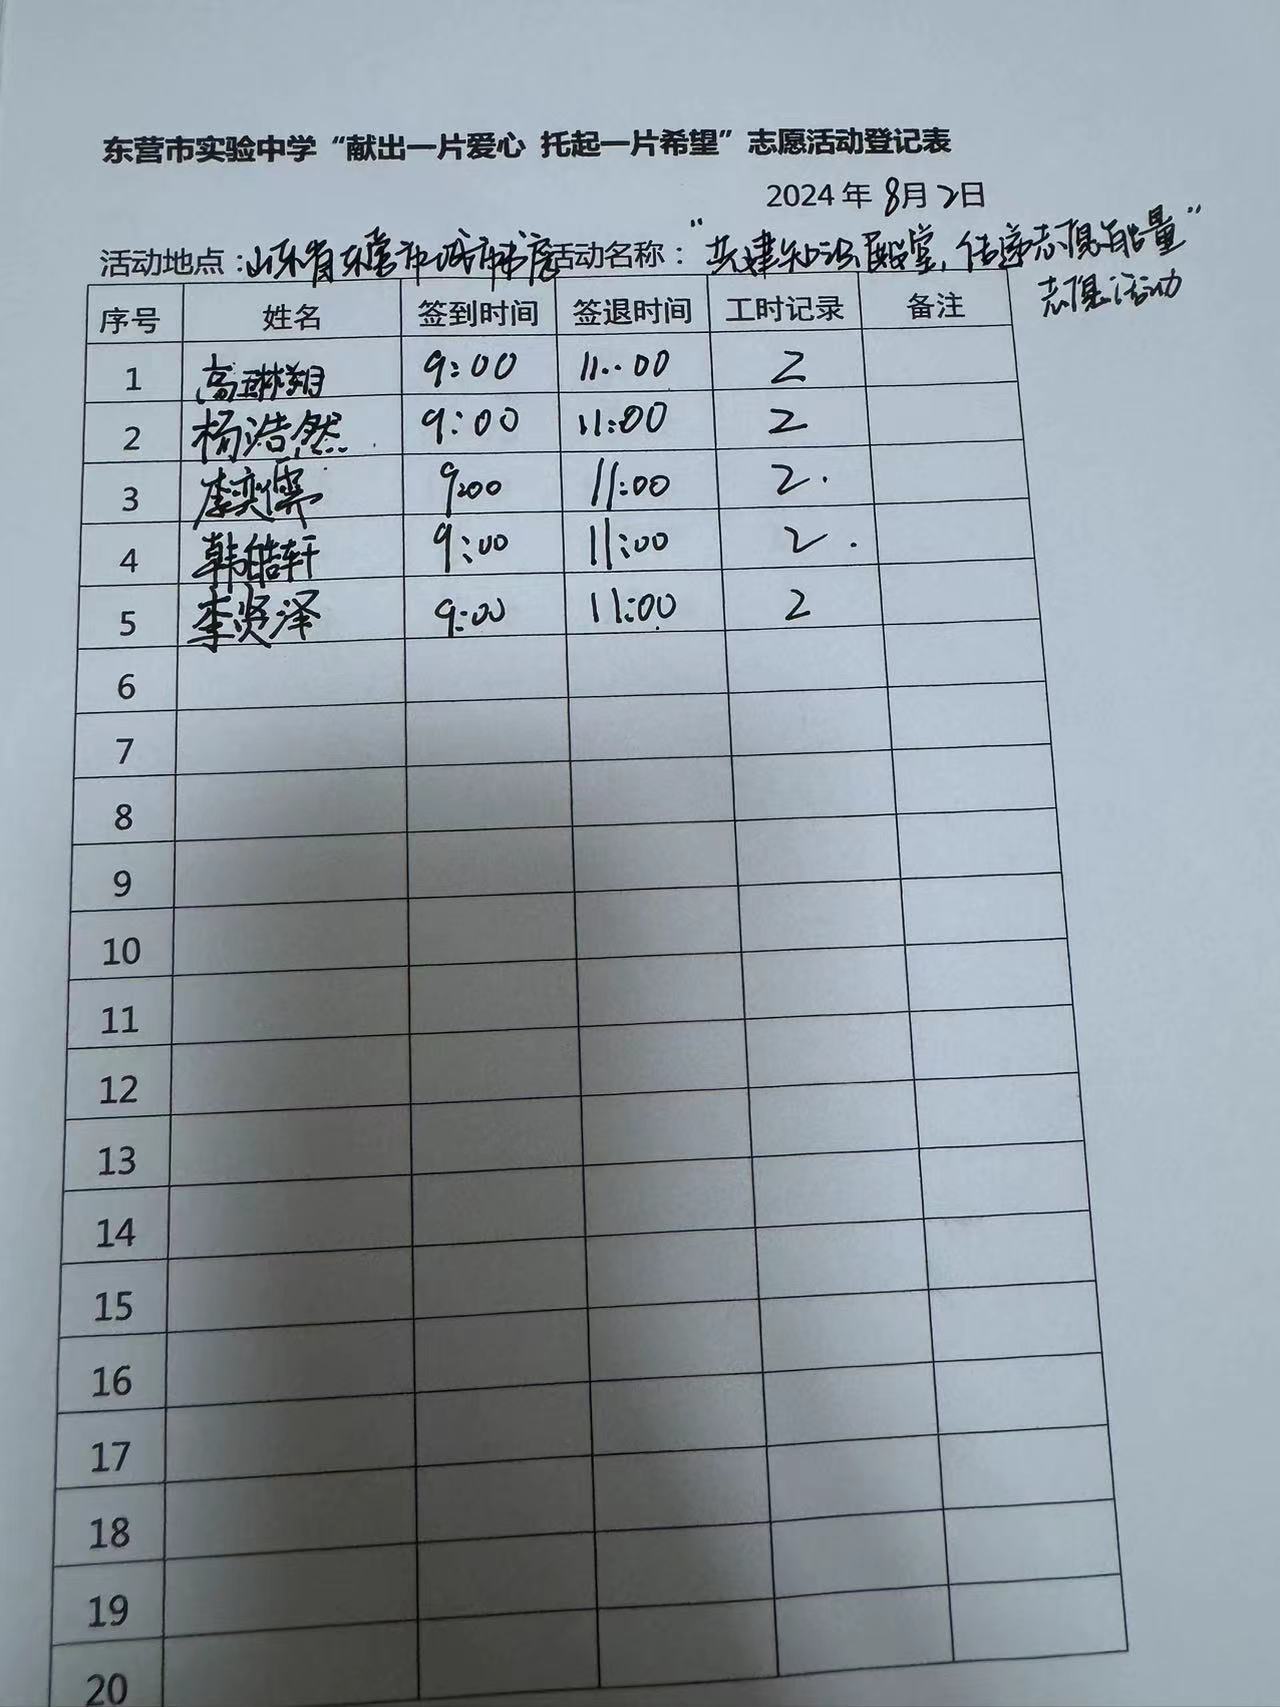 东营市实验中学“献出一片爱心 托起一片希望”志愿活动登记表
2024 年 8月 2日
活动地点：山东省东营市城市书房活动名称：“共建知识殿堂，传递志愿能量”
志愿活动
序号 姓名 签到时间 签退时间 工时记录 备注
1 高琳翔 9:00 11:00 2
2 杨浩然 9:00 11:00 2
3 李奕儒 9:00 11:00 2.
4 韩皓轩 9:00 11:00 2.
5 李贤泽 9:00 11:00 2
6
7
8
9
10
11
12
13
14
15
16
17
18
19
20